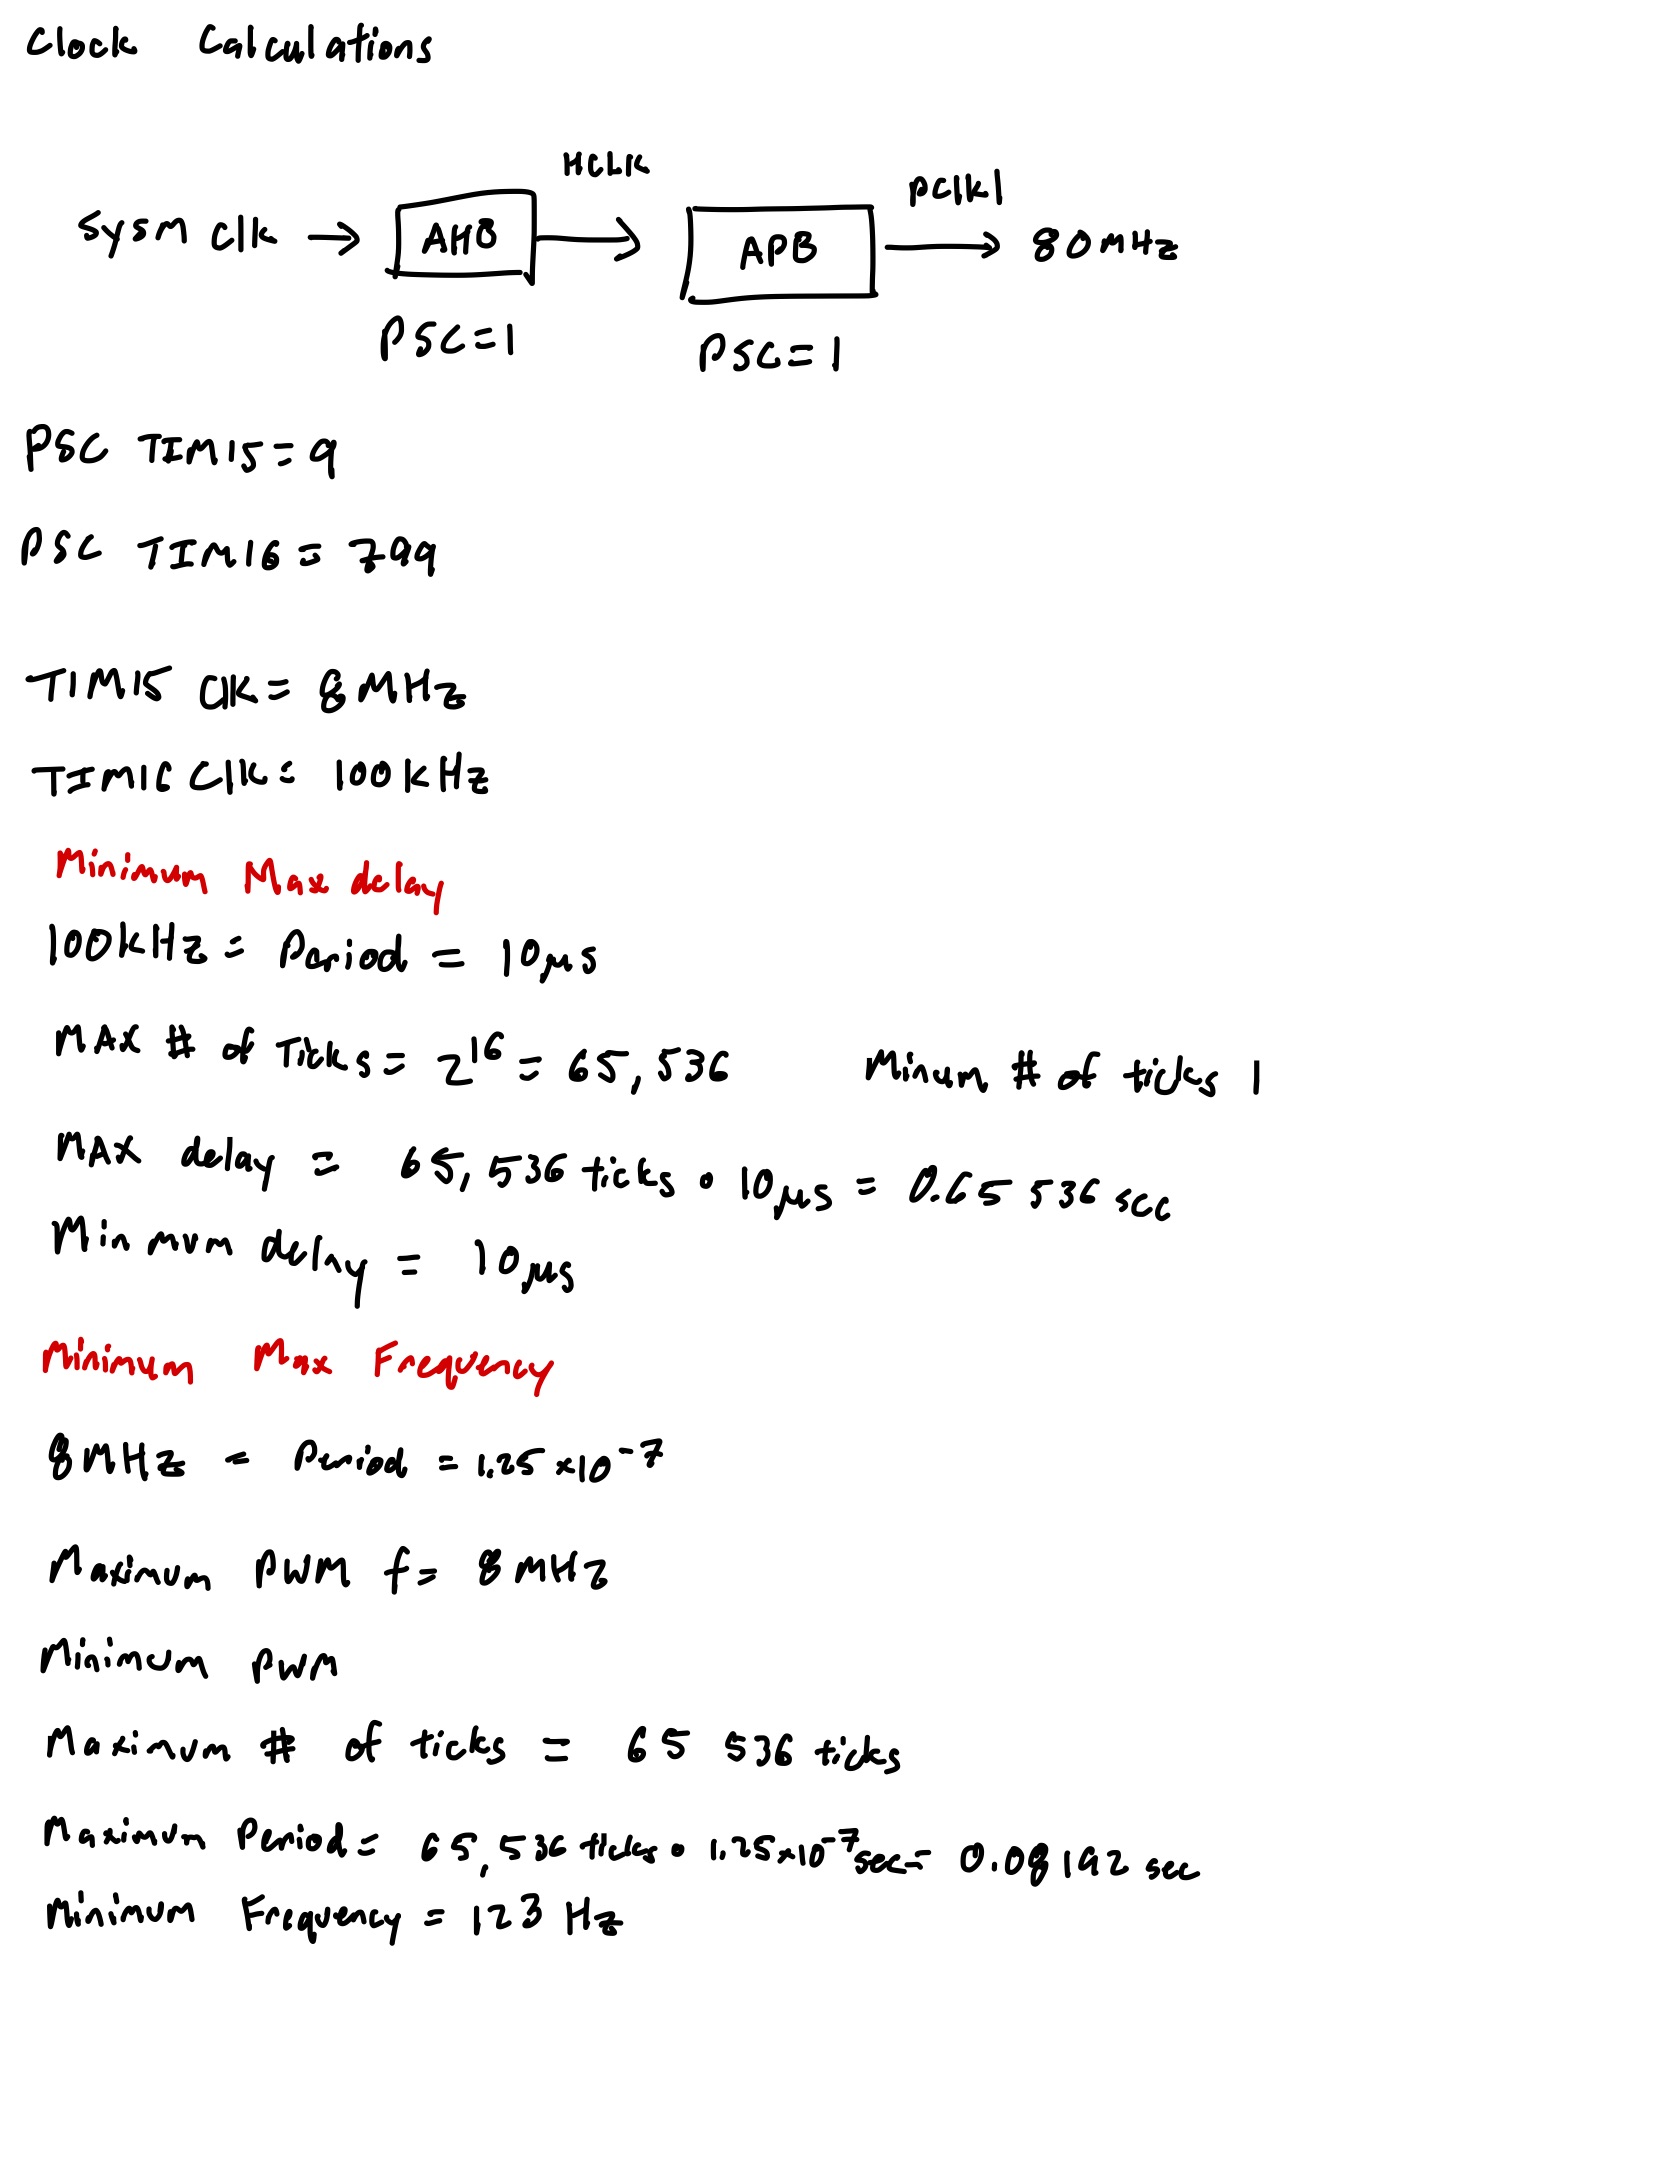 Clock Calculations
HCLK
pclk1
Sysm clk → AHB → APB → 80 MHz
PSC=1
PSC=1
PSC TIM15 = 9
PSC TIM16 = 799
TIM15 Clk = 8 MHz
TIM16 Clk = 100 kHz
Minimum Max delay
100kHz = Period = 10 μs
MAX # of Ticks = 2^16 = 65,536 Minum # of ticks 1
MAX delay = 65,536 ticks • 10μs = 0.65536 sec
Minmum delay = 10 μs
Minimum Max Frequency
8 MHz = Period = 1.25 x10^-7
Maximum PWM f= 8 MHz
Minimum PWM
Maximum # of ticks = 65 536 ticks
Maximum Period = 65,536 ticks • 1.25x10^-7 sec = 0.08192 sec
Minimum Frequency = 123 Hz